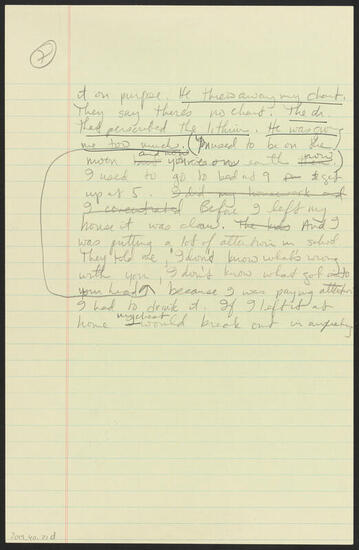 7
it on purpose. He threw away my chart.
They say there's no chart. The dr.
had perscribed the lithium. He was giving
me too much. (I used to be on the
and now
moon you're on earth now)
I used to go to bed at 9 get
up at 5. I did my housework and
I concentrated Before I left my
house it was clean. The kids And I
was putting a lot of attention in school
They told me, I don't know what's wrong
with you, I don't know what got into
your head, because I was paying attention
I had to drink it. If I left it at
my chest
home I would break out in anxiety
2019.40.21d